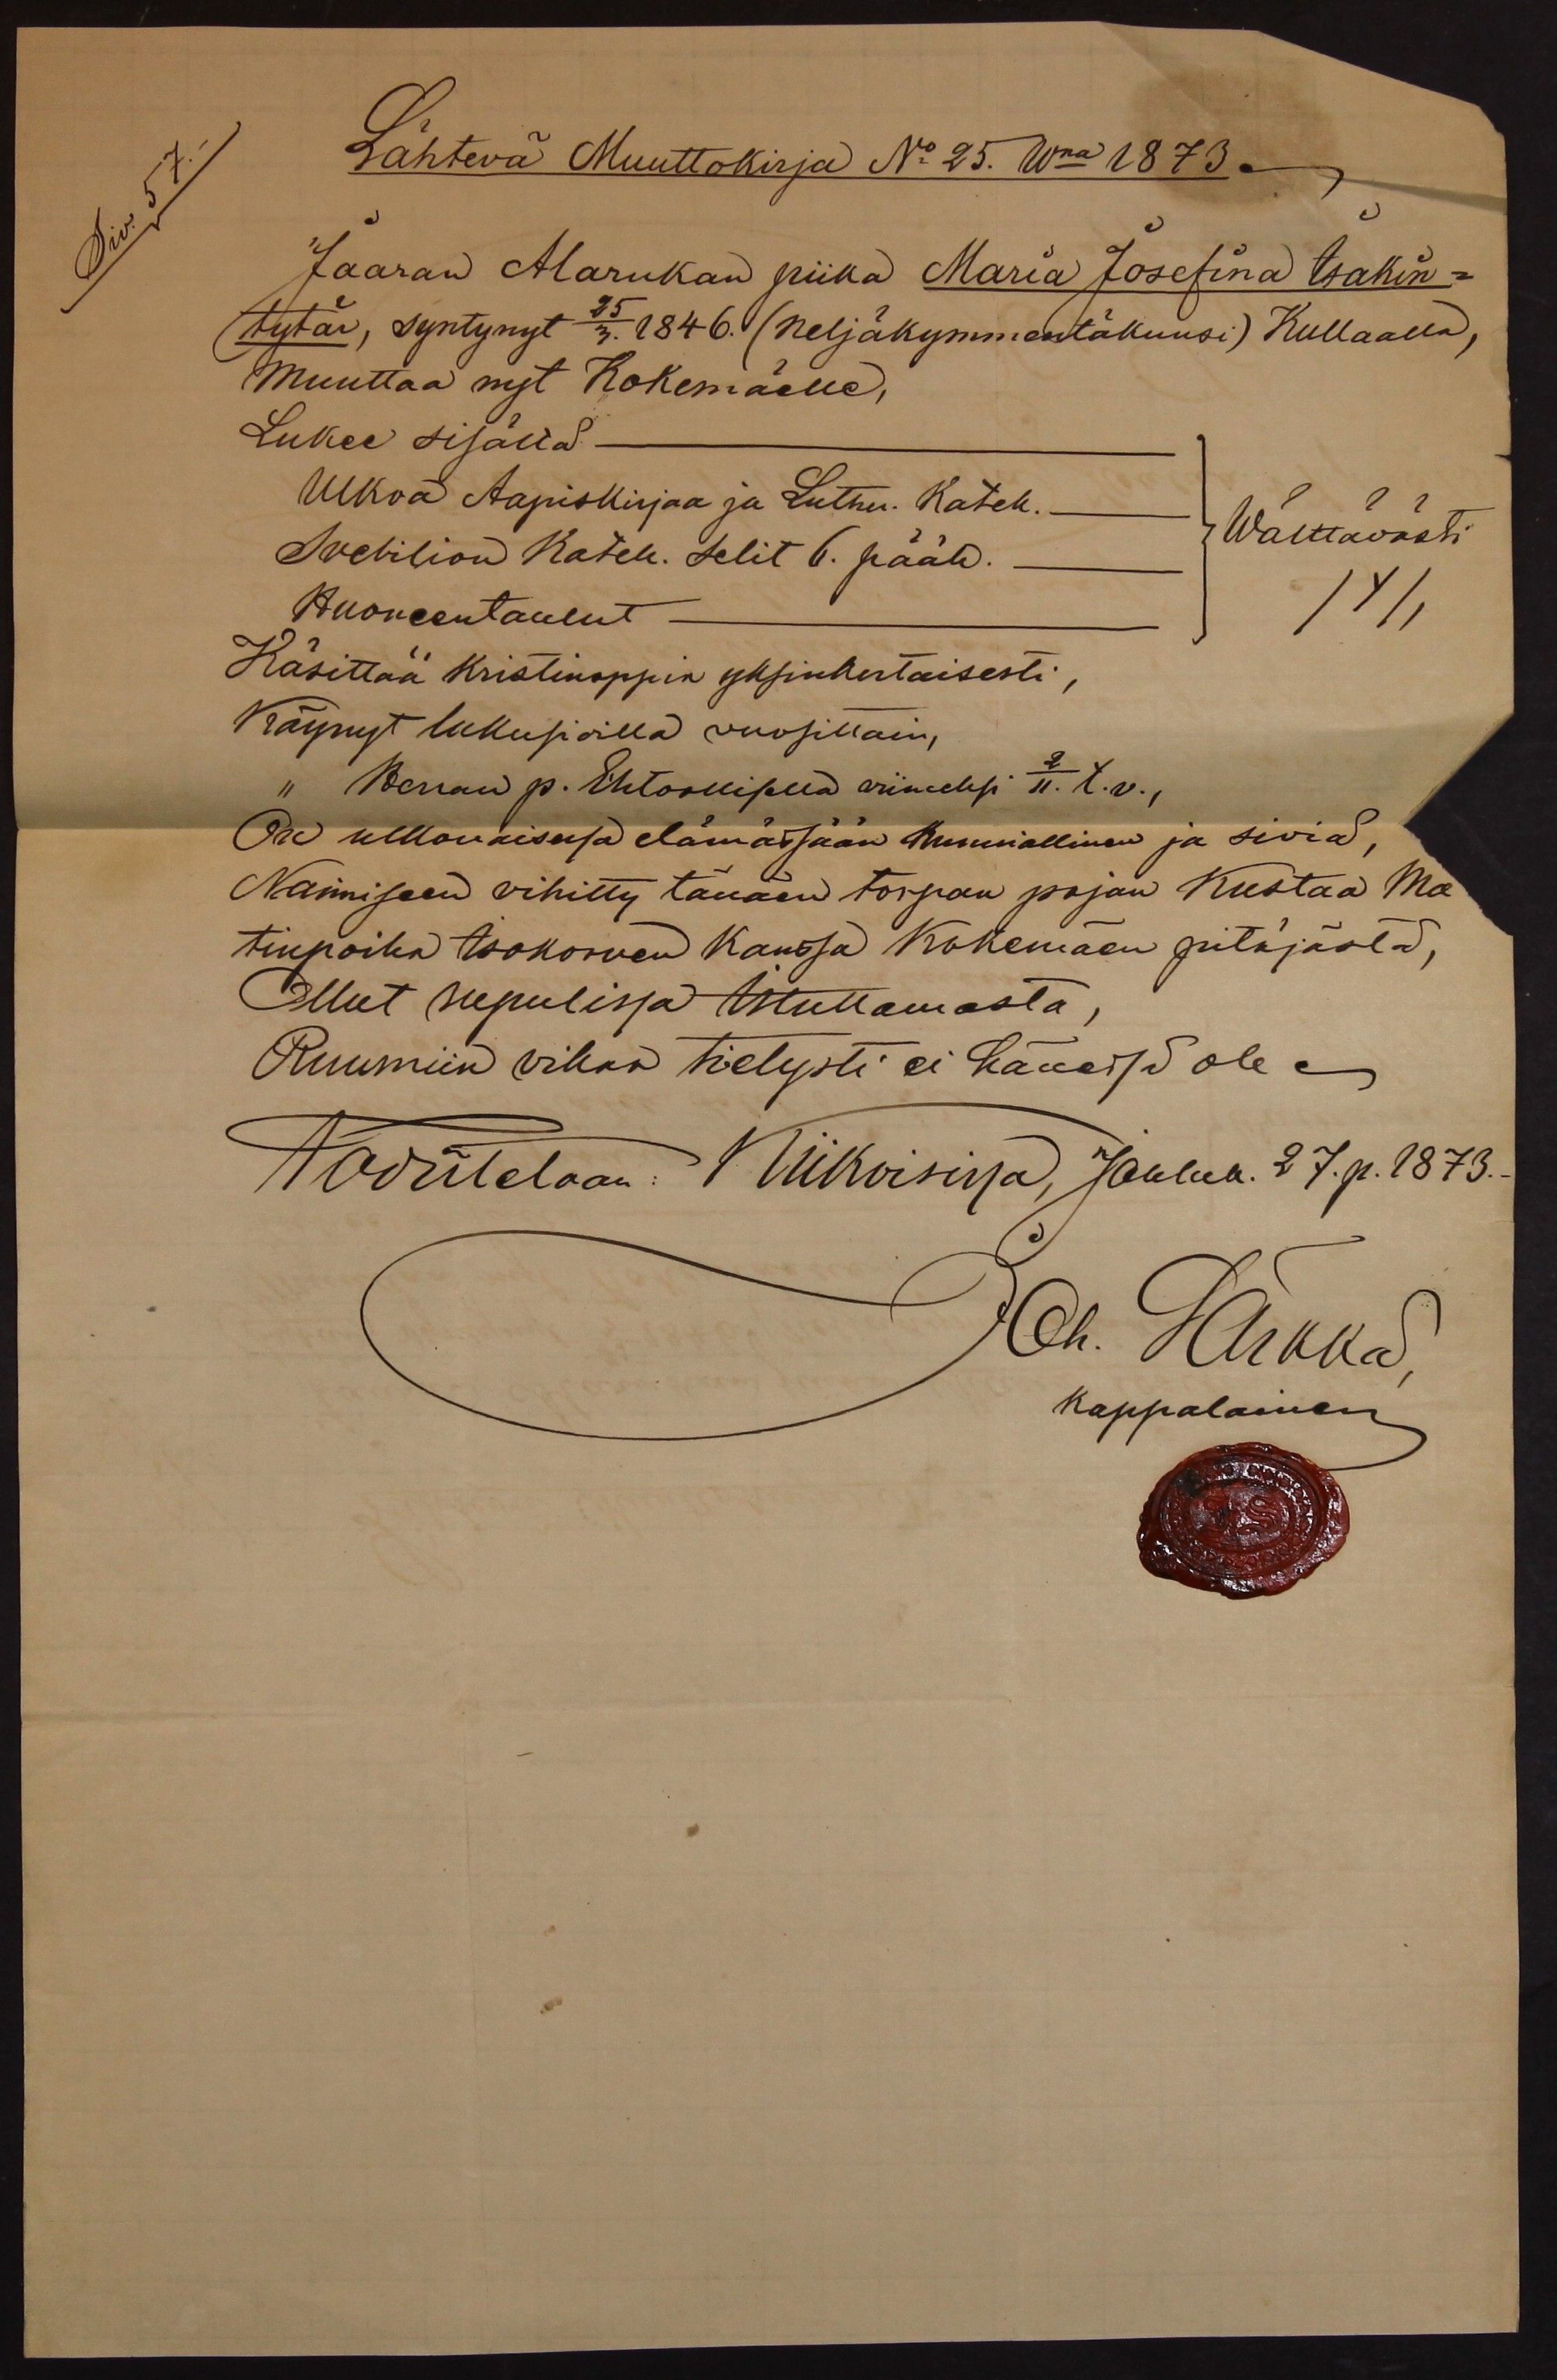 Siv. 57.-
Lähtevä Muuttokirja No 25. Wna 1873.
Jaaran Alarukan piika Maria Josefina Isakin=
tytär, syntynyt 25/3. 1846. (Neljäkymmentäkuusi) Kullaalla,
Muuttaa nyt Kokemäelle,
Lukee sisältä
Ulkoa Aapiskirjaa ja Luther. Katek.
Svebilion Katek. selit 6. pääk.
Huoneentaulut
Wälttävästi
Käsittää Kristinoppin yksinkertaisesti,
Käynyt lukusioilla vuosittain,
" Herran p. Ehtoollisella viimeksi 2/11. t.v.,
On ulkonaisessa elämässään kunniallinen ja siviä,
Naimiseen vihitty tänään torpan pojan Kustaa Ma
tinpoika Isokorven kanssa Kokemäen pitäjästä,
Ollut rupulissa Istuttamasta,
Ruumiin vikaa tietysti ei hänessä ole
Todistetaan: Kiikoisissa, Jouluk. 27. p. 1873.-
Joh. Särkkä,
kappalainen